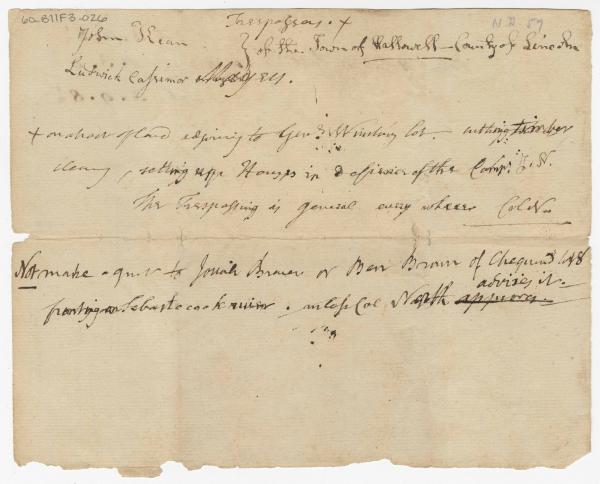 60-811F3-026
N.R. 59
Trespassers. +
John Kean } of the Town of Hallowell - County of Lincoln
Ludwick Cassimor
+ on a tract of Land adjoining to Genl Winslow's lot - cutting timber
clearing, setting upp Houses in defiance of the Comp.
The Trespassing is general every where Col. No
Not make a quit to Josiah Brown or Ben Brown of lot 8
advises it.
fronting on Sebastocook river. unless Col North approves.